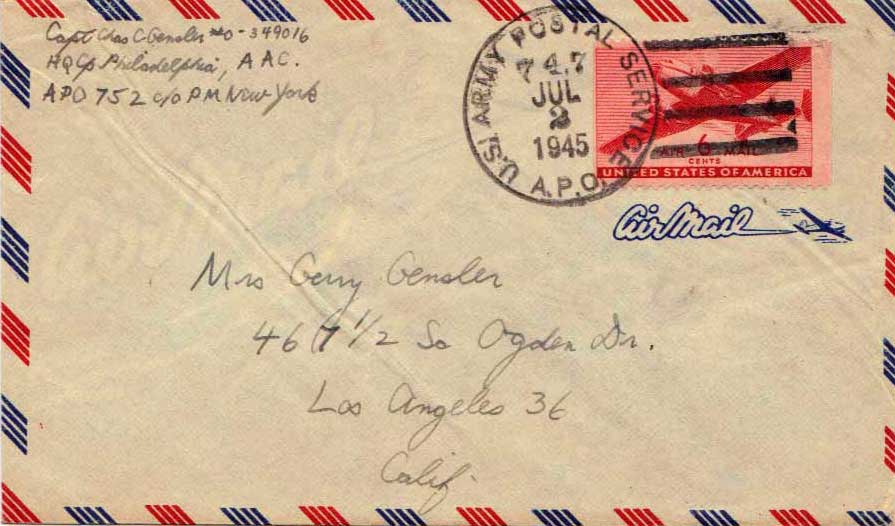 Capt Chas C Gensler #O-349016
HQ Cp Philadelphia, AAC.
APO 752 c/o PM New York
U.S. ARMY POSTAL SERVICE
747
JUL
2
1945
A.P.O.
AIR 6 MAIL
CENTS
UNITED STATES OF AMERICA
Air Mail
Mrs Gerry Gensler
467 1/2 So Ogden Dr.
Los Angeles 36
Calif.